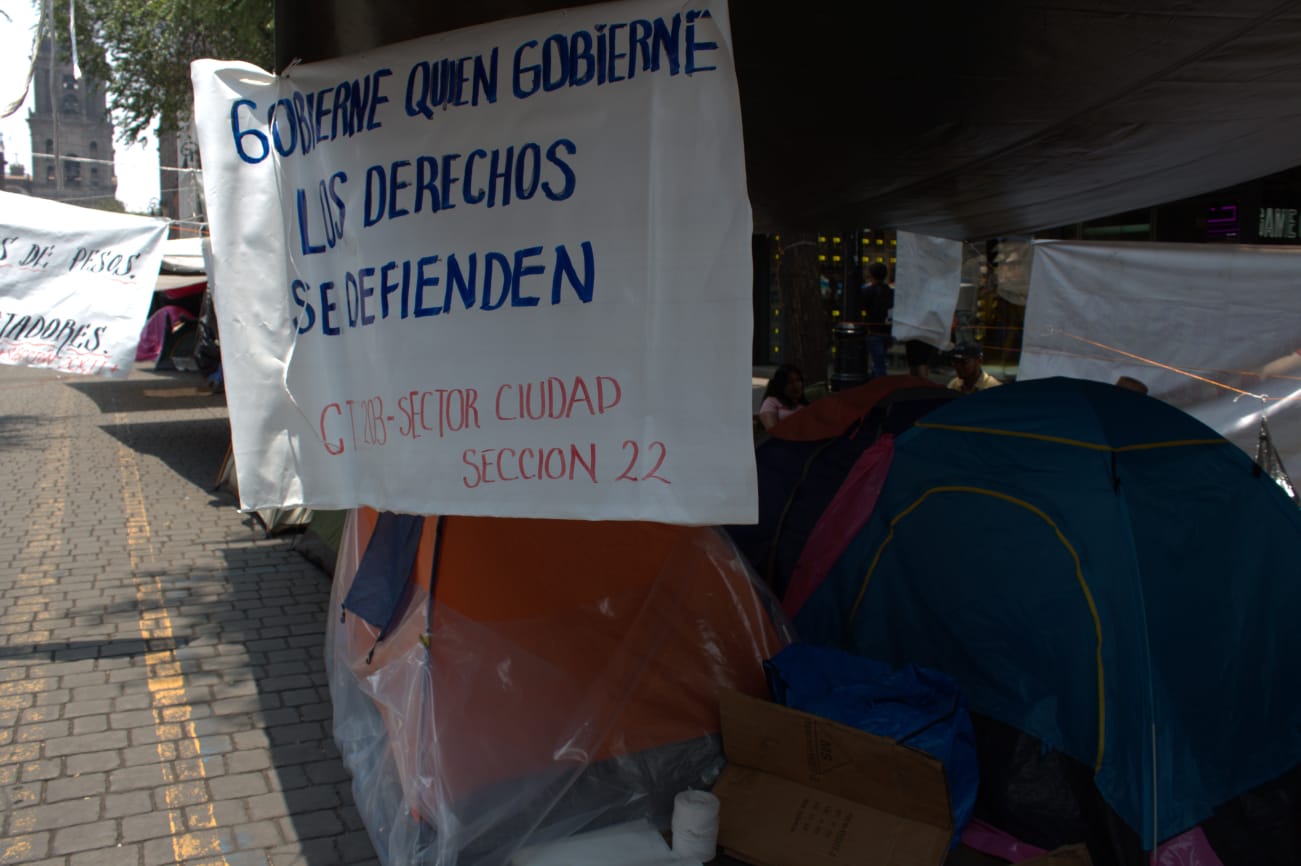 GOBIERNE QUIEN GOBIERNE
LOS DERECHOS
SE DEFIENDEN
CT 203-SECTOR CIUDAD
SECCION 22
S DE PESOS.
TADORES.